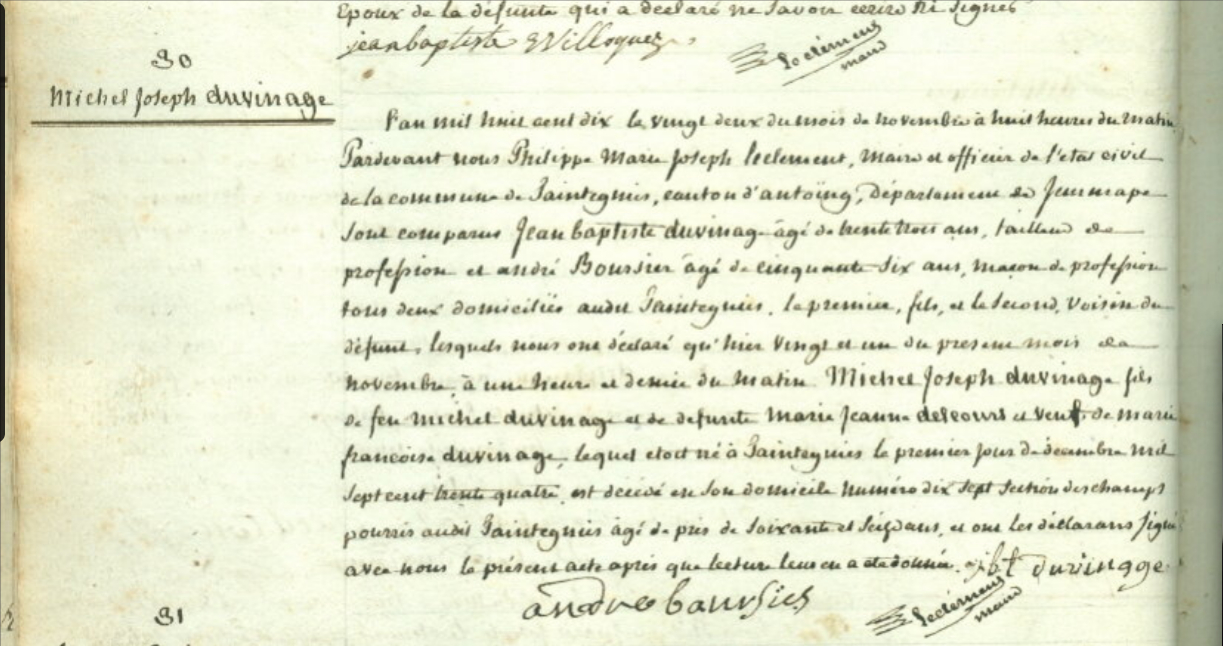 Epoux de la défunte qui a declaré ne Savoir ecrire Ni Signer
jeanbaptiste
Leclément
maire
30
Michel Joseph duvinage
L'an mil huit cent dix le vingt deux du mois de novembre à huit heures du matin
Pardevant nous Philippe Marie Joseph leclement, Maire et officier de l'etat civil
de la commune de Sainteguies, canton d'antoing, Département de Jemmape
Sont comparus Jean baptiste duvinage âgé de trente trois ans, tailleur de
profession et andré Boursier âgé de cinquante Six ans, maçon de profession
tous deux domiciliés audit Sainteguies, le premier, fils, et le Second, Voisin du
défunt, lesquels nous ont déclaré qu'hier Vingt et un du present mois de
novembre à une heure et demie du matin Michel Joseph duvinage fils
de feu Michel duvinage et de defunte Marie Jeanne delcourt et veuf de marie
francoise duvinage, lequel etoit né à Sainteguies le premier jour de décembre mil
Sept cent trente quatre est décédé en Son domicile Numéro dix Sept Section des champs
pourris audit Sainteguies âgé de près de Soixante et Seize ans, et ont les déclarans Signé
avec nous le présent acte après que lecture leur en a eté donnée. jbt Duvinage
andre boursies
Leclément
maire
31